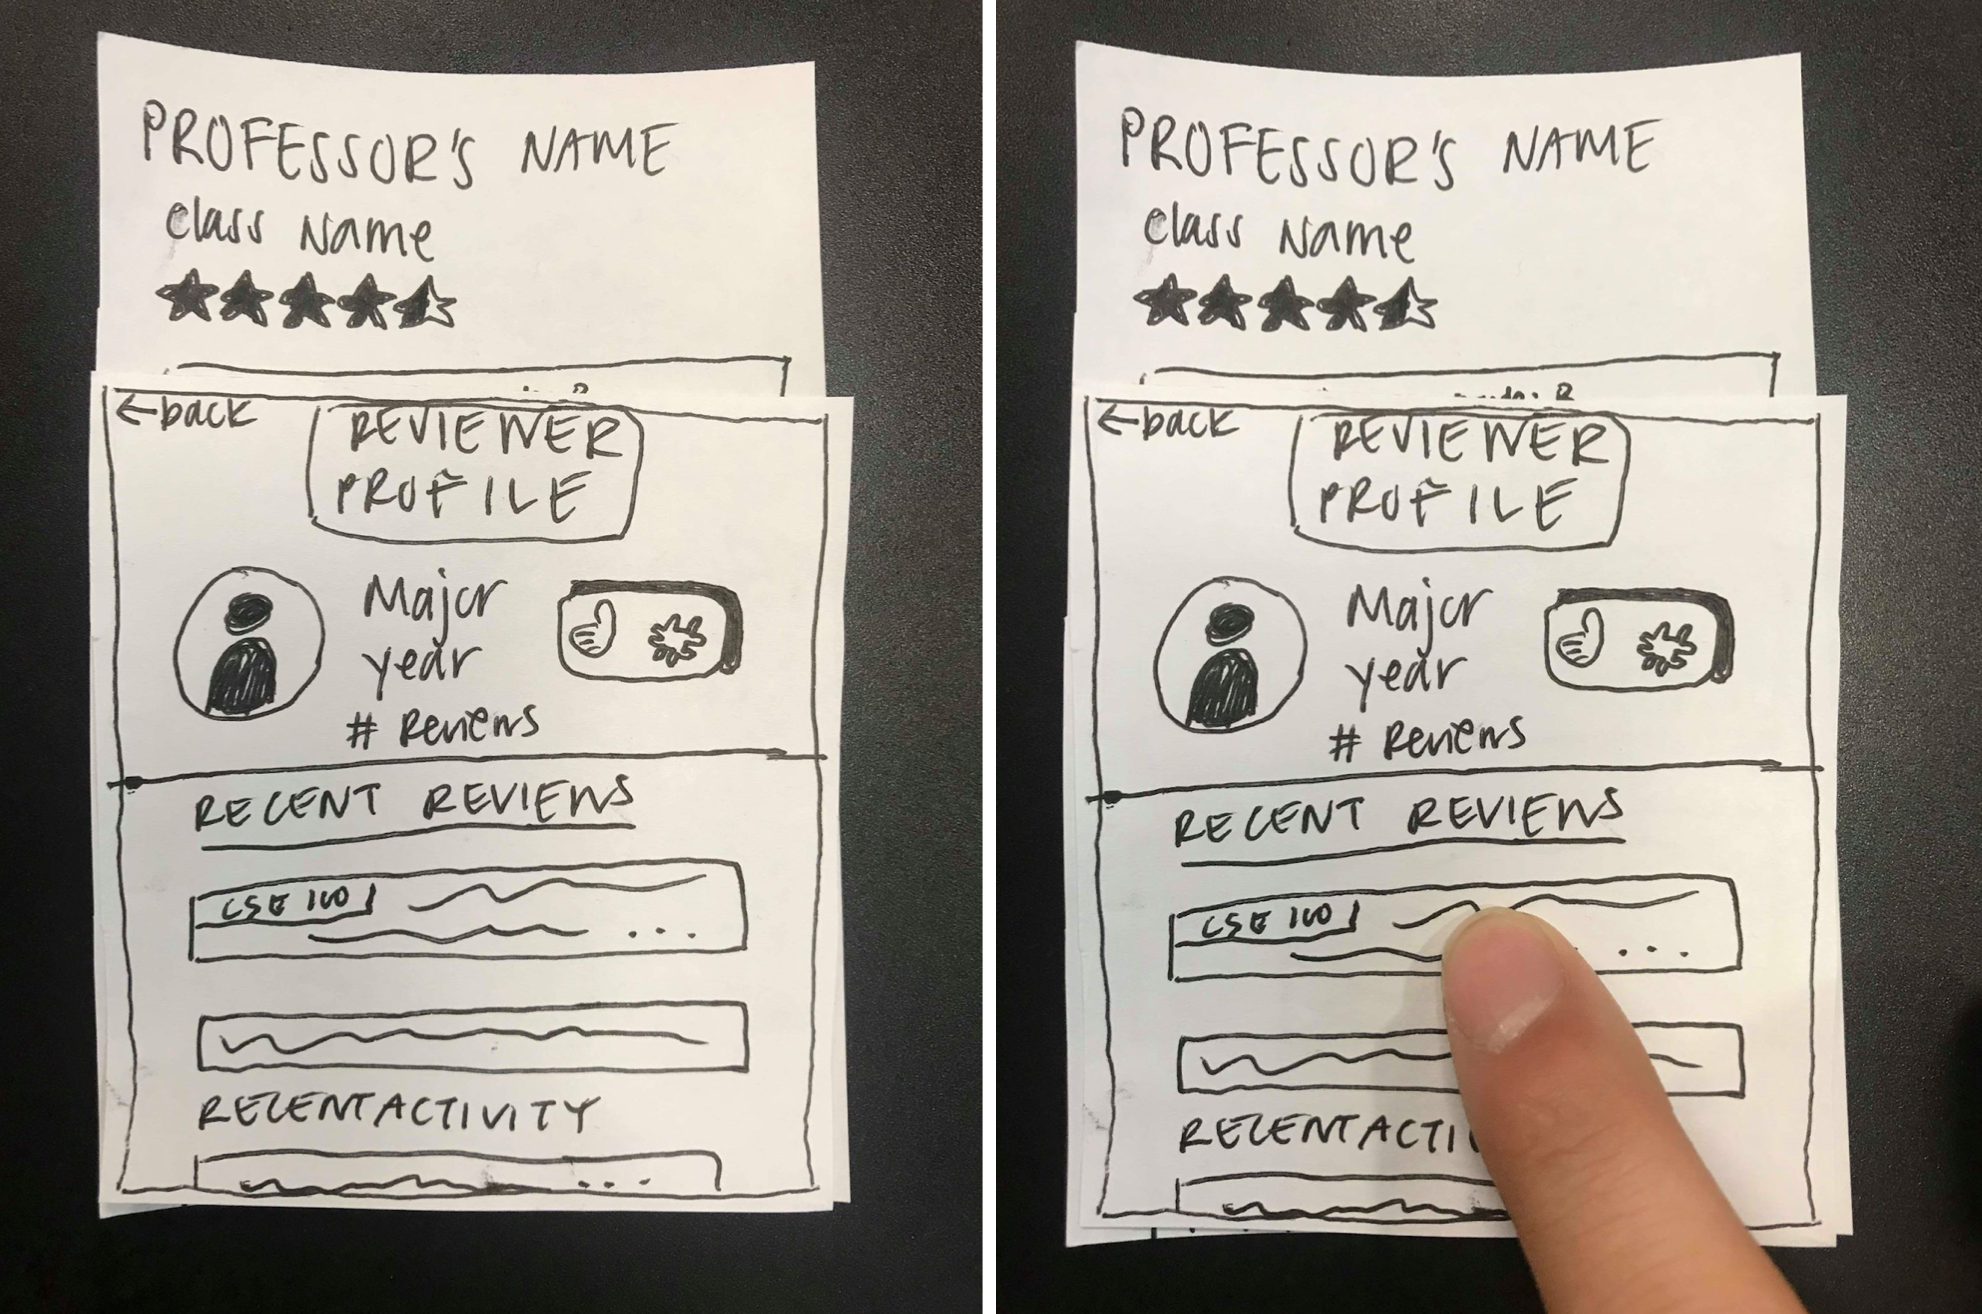 PROFESSOR'S NAME
Class Name
← back
REVIEWER
PROFILE
Major
year
# Reviews
RECENT REVIEWS
CSE 100
...
RECENT ACTIVITY
...
PROFESSOR'S NAME
Class Name
← back
REVIEWER
PROFILE
Major
year
# Reviews
RECENT REVIEWS
CSE 100
...
RECENT ACTIV